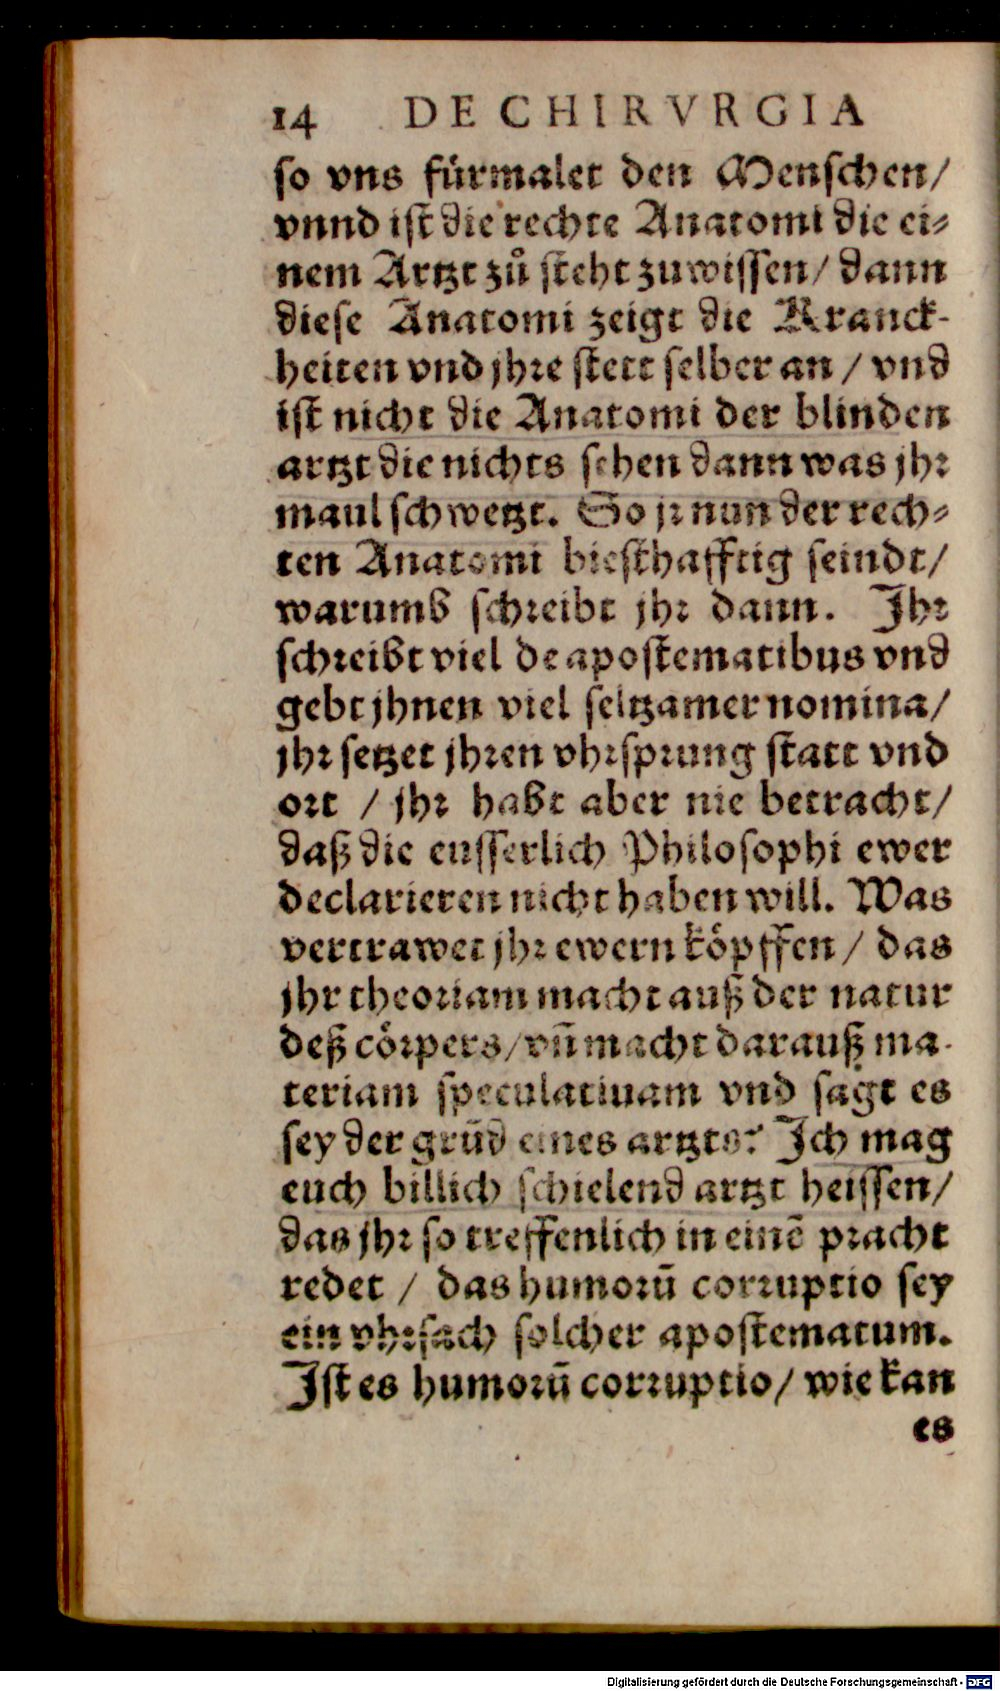 14 DE CHIRVRGIA
so vns fürmalet den Menschen/
vnnd ist die rechte Anatomi die ei-
nem Artzt zů steht zuwissen/ dann
diese Anatomi zeigt die Kranck-
heiten vnd jhre stett selber an / vnd
ist nicht die Anatomi der blinden
artzt die nichts sehen dann was jhr
maul schwetzt. So jr nun der rech-
ten Anatomi biesthafftig seindt/
warumb schreibt jhr dann. Ihr
schreibt viel de apostematibus vnd
gebt jhnen viel seltzamer nomina/
jhr setzet jhren vhrsprung statt vnd
ort / jhr habt aber nie betracht/
daß die eusserlich Philosophi ewer
declarieren nicht haben will. Was
vertrawet jhr ewern köpffen/ das
jhr theoriam macht auß der natur
deß cörpers/ vñ macht darauß ma-
teriam speculatiuam vnd sagt es
sey der grūd eines artzts? Ich mag
euch billich schielend artzt heissen/
das jhr so treffenlich in einē pracht
redet / das humorū corruptio sey
ein vhrsach solcher apostematum.
Ist es humorū corruptio/ wie kan
es
Digitalisierung gefördert durch die Deutsche Forschungsgemeinschaft - DFG